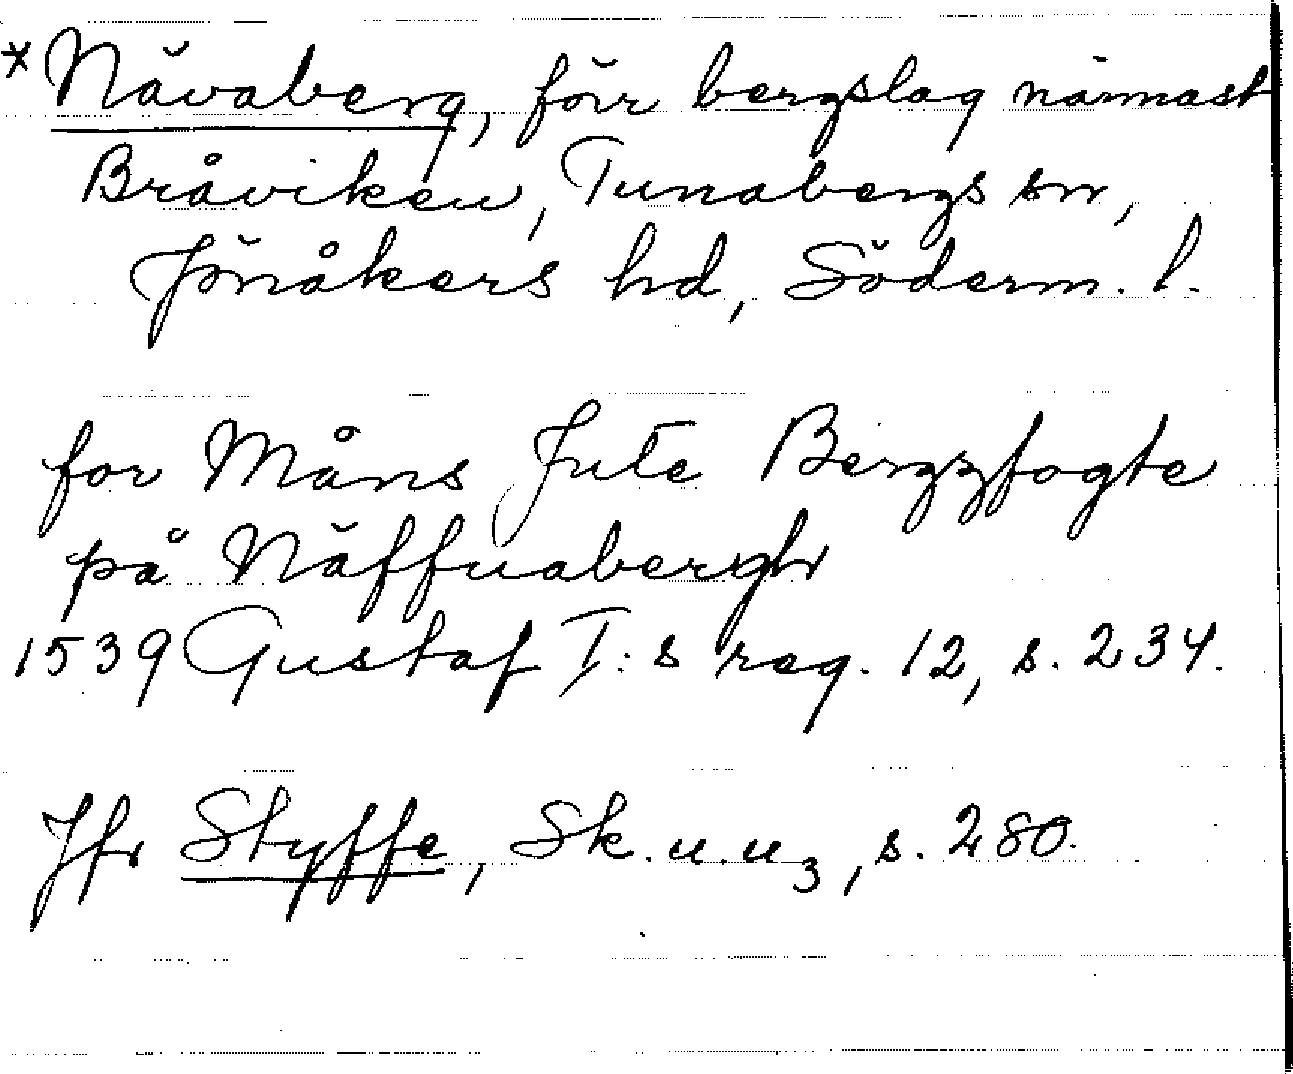 * Nävaberg, förr bergslag närmast
Bråviken, Tunabergs snr,
Jönåkers hd, Söderm. l.
for Måns Jute Bergzfogte
på Näffuabergh
1539 Gustaf I:s reg. 12, s. 234.
Jfr Styffe, Sk. u. u3, s. 280.